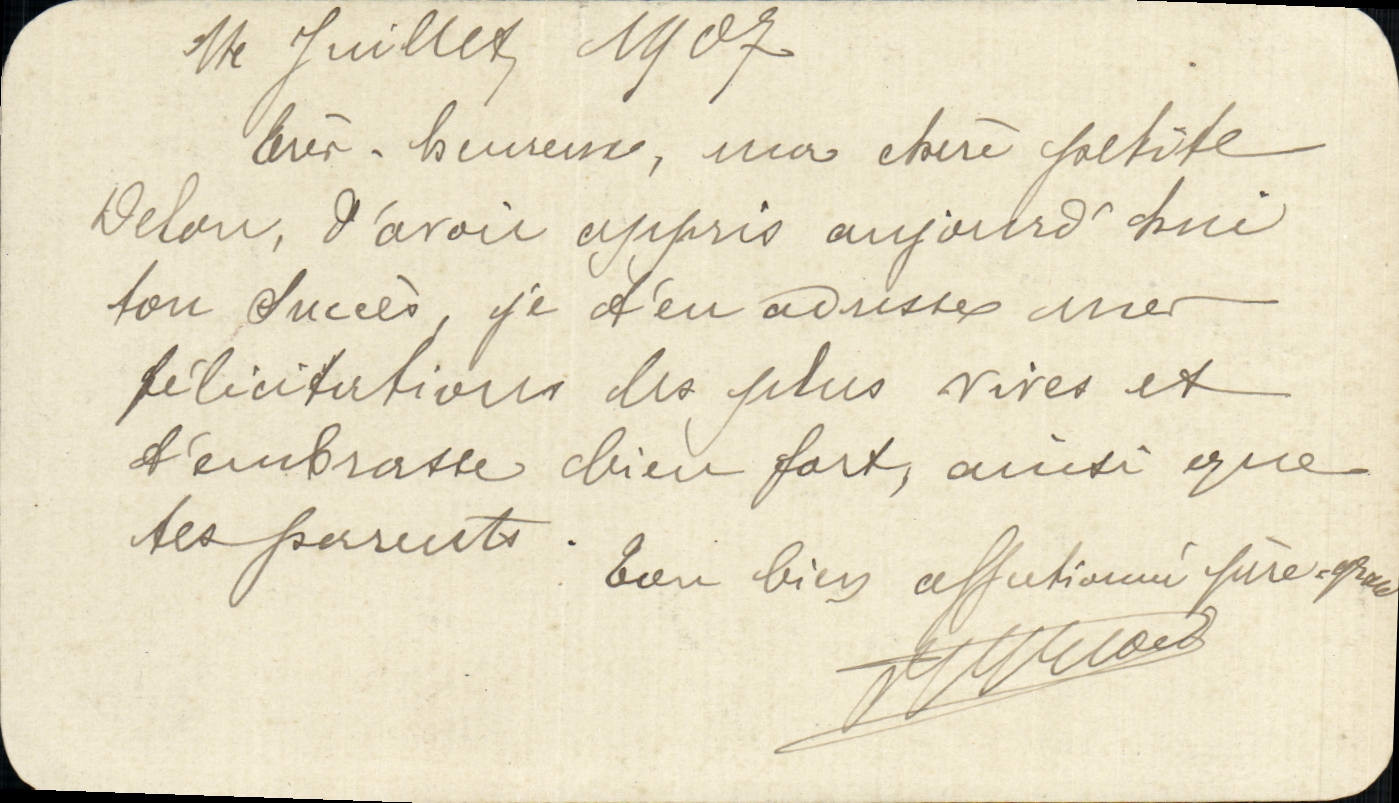 Juillet, 1907
Très-heureux, ma chère petite
d'avoir appris aujourd'hui
ton succès, je t'en adresse mes
félicitations les plus vives et
t'embrasse bien fort, ainsi que
tes parents.
Ton bien affectionné père-grand